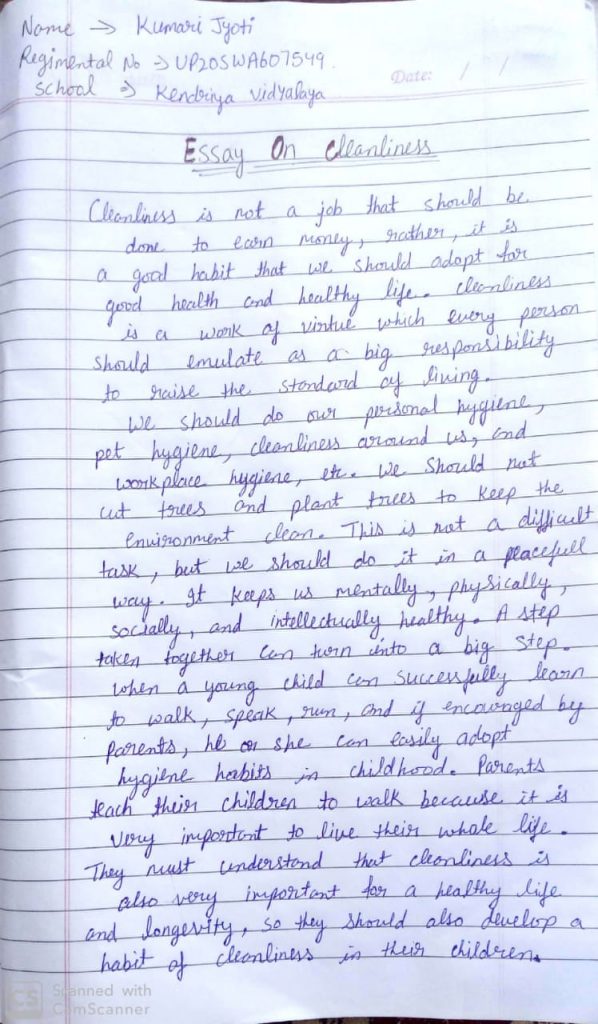 Name → Kumari Jyoti
Regimental No → UP20SWA607549.
School → Kendriya Vidyalaya
Date: / /
Essay On Cleanliness
Cleanliness is not a job that should be
done to earn money, rather, it is
a good habit that we should adopt for
good health and healthy life. cleanliness
is a work of virtue which every person
should emulate as a big responsibility
to raise the standard of living.
We should do our personal hygiene,
pet hygiene, cleanliness around us, and
workplace hygiene, etc. We should not
cut trees and plant trees to keep the
environment clean. This is not a difficult
task, but we should do it in a peacefull
way. It keeps us mentally, physically,
socially, and intellectually healthy. A step
taken together can turn into a big step.
when a young child can successfully learn
to walk, speak, run, and if encouraged by
parents, he or she can easily adopt
hygiene habits in childhood. Parents
teach their children to walk because it is
very important to live their whole life.
They must understand that cleanliness is
also very important for a healthy life
and longevity, so they should also develop a
habit of cleanliness in their children.
CS Scanned with
CamScanner